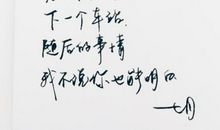 下一个车站
随后的事情
我不说你也能明白
一月